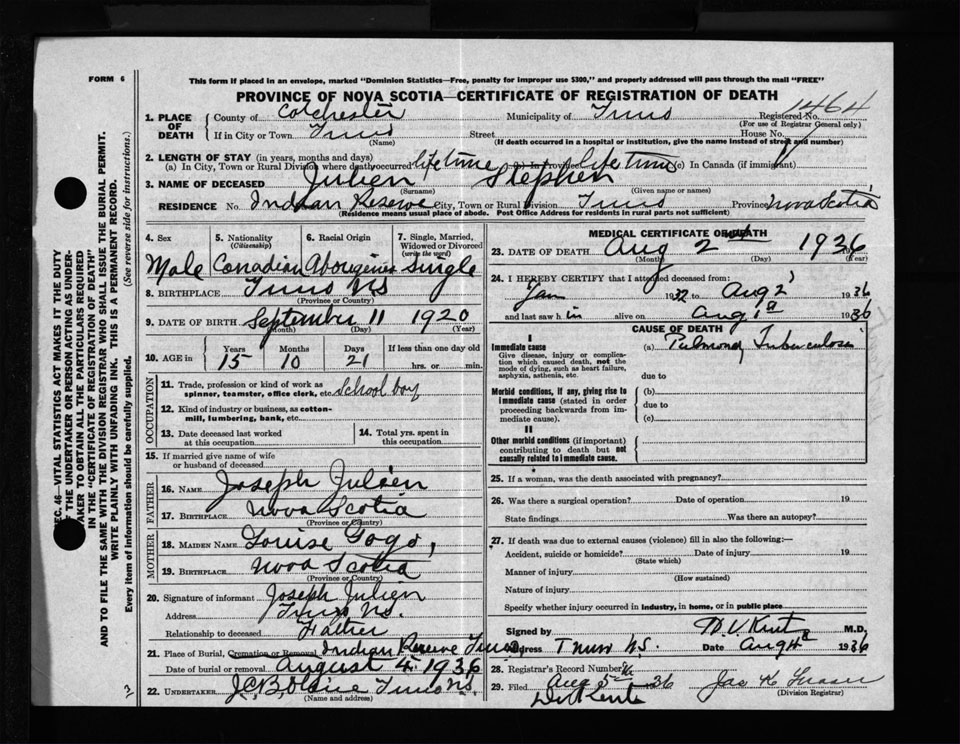 FORM 6
This form if placed in an envelope, marked "Dominion Statistics—Free, penalty for improper use $300," and properly addressed will pass through the mail "FREE"
PROVINCE OF NOVA SCOTIA—CERTIFICATE OF REGISTRATION OF DEATH
1464
1. PLACE OF DEATH
County of Colchester Municipality of Truro Registered No.
(For use of Registrar General only)
If in City or Town Truro Street House No.
(Name) (If death occurred in a hospital or institution, give the name instead of street and number)
2. LENGTH OF STAY (in years, months and days)
(a) In City, Town or Rural Division where death occurred life time Province life time (c) In Canada (if immigrant) "
3. NAME OF DECEASED Julien Stephen
(Surname) (Given name or names)
RESIDENCE No. Indian Reserve City, Town or Rural Division Truro Province Nova Scotia
(Residence means usual place of abode. Post Office Address for residents in rural parts not sufficient)
4. Sex
Male
5. Nationality
(Citizenship)
Canadian
6. Racial Origin
7. Single, Married, Widowed or Divorced
(write the word)
single
8. BIRTHPLACE Truro NS
(Province or Country)
9. DATE OF BIRTH September 11 1920
(Month) (Day) (Year)
10. AGE in
Years Months Days If less than one day old
15 10 21 hrs. or min.
OCCUPATION
11. Trade, profession or kind of work as spinner, teamster, office clerk, etc. School boy
12. Kind of industry or business, as cotton-mill, lumbering, bank, etc.
13. Date deceased last worked at this occupation
14. Total yrs. spent in this occupation.
15. If married give name of wife or husband of deceased
FATHER
16. Name Joseph Julien
17. Birthplace Nova Scotia
(Province or Country)
MOTHER
18. Maiden Name Louise Gogo,
19. Birthplace Nova Scotia
(Province or Country)
20. Signature of informant Joseph Julien
Address Truro NS.
Relationship to deceased Father
21. Place of Burial, Cremation or Removal Indian Reserve Truro
Date of burial or removal August 4. 1936
22. UNDERTAKER Truro NS
(Name and address)
MEDICAL CERTIFICATE OF DEATH
23. DATE OF DEATH Aug 2nd 1936
(Month) (Day) (Year)
24. I HEREBY CERTIFY that I attended deceased from:
Jan 1932 to Aug 2 1936
and last saw h im alive on Aug 1st 1936
CAUSE OF DEATH
I
Immediate cause
Give disease, injury or complication which caused death, not the mode of dying, such as heart failure, asphyxia, asthenia, etc.
(a) Pulmonary Tuberculosis
due to
Morbid conditions, if any, giving rise to immediate cause (stated in order proceeding backwards from immediate cause).
(b)
due to
(c)
II
Other morbid conditions (if important) contributing to death but not causally related to immediate cause.
25. If a woman, was the death associated with pregnancy?
26. Was there a surgical operation? Date of operation 19
State findings Was there an autopsy?
27. If death was due to external causes (violence) fill in also the following:—
Accident, suicide or homicide? Date of injury 19
(State which)
Manner of injury
(How sustained)
Nature of injury
Specify whether injury occurred in industry, in home, or in public place
Signed by H.V. Kent M.D.
Address Truro N.S. Date Aug 4 1936
28. Registrar's Record Number
29. Filed Aug 5th 36 Jas K Fraser
(Division Registrar)
SEC. 46—VITAL STATISTICS ACT MAKES IT THE DUTY OF THE UNDERTAKER OR PERSON ACTING AS UNDERTAKER TO OBTAIN ALL THE PARTICULARS REQUIRED IN THE "CERTIFICATE OF REGISTRATION OF DEATH"
AND TO FILE THE SAME WITH THE DIVISION REGISTRAR WHO SHALL ISSUE THE BURIAL PERMIT.
WRITE PLAINLY WITH UNFADING INK. THIS IS A PERMANENT RECORD.
Every item of information should be carefully supplied. (See reverse side for instructions.)